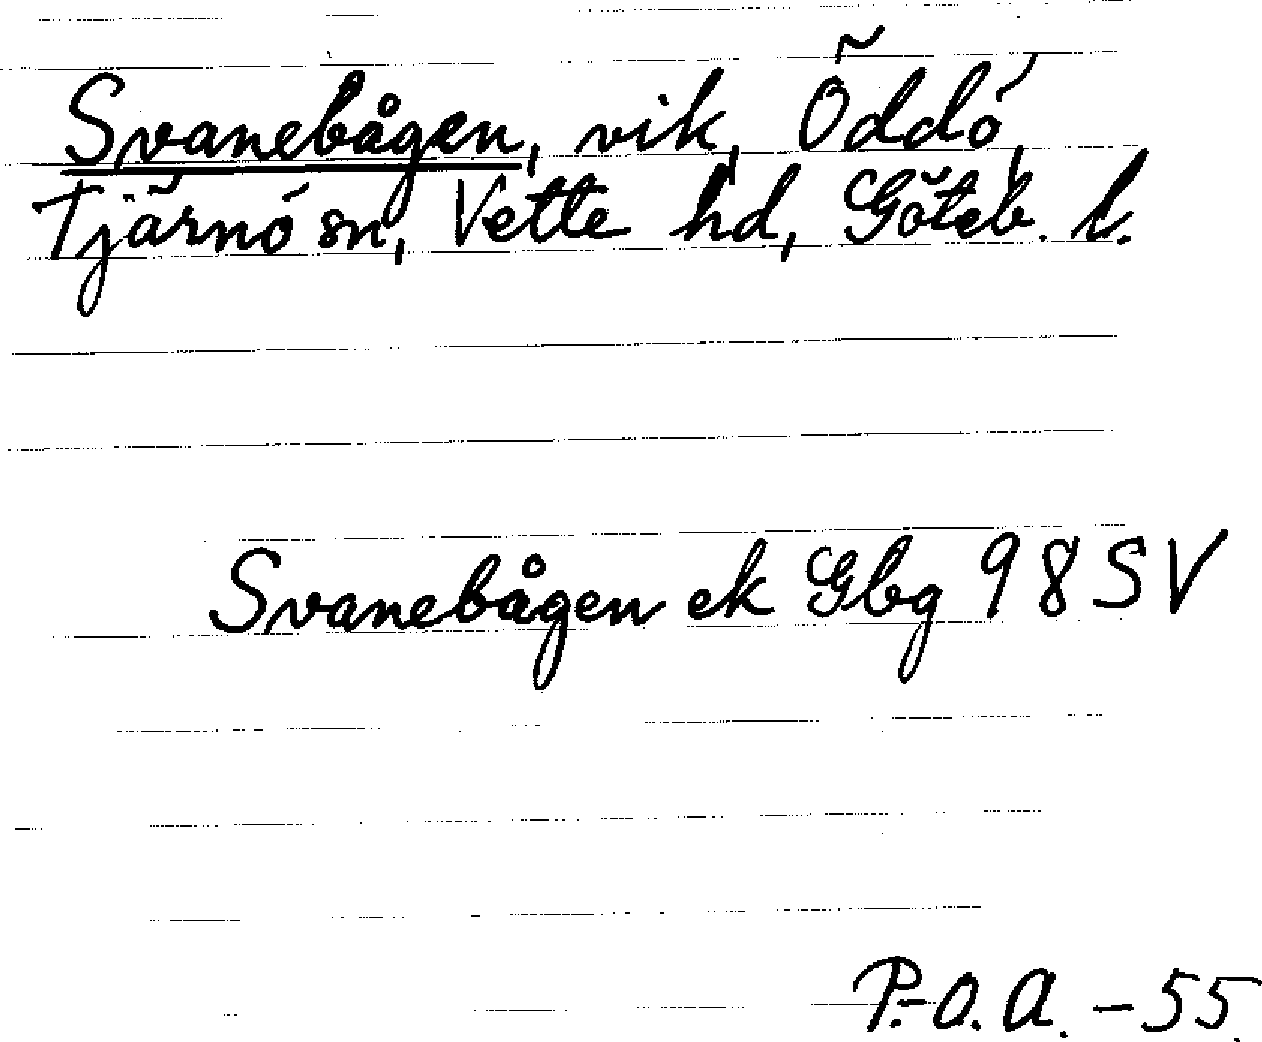 Svanebågen, vik, Öddö,
Tjärnö sn, Vette hd, Göteb. l.
Svanebågen ek Gbg 98 SV
P.-O. A. - 55.